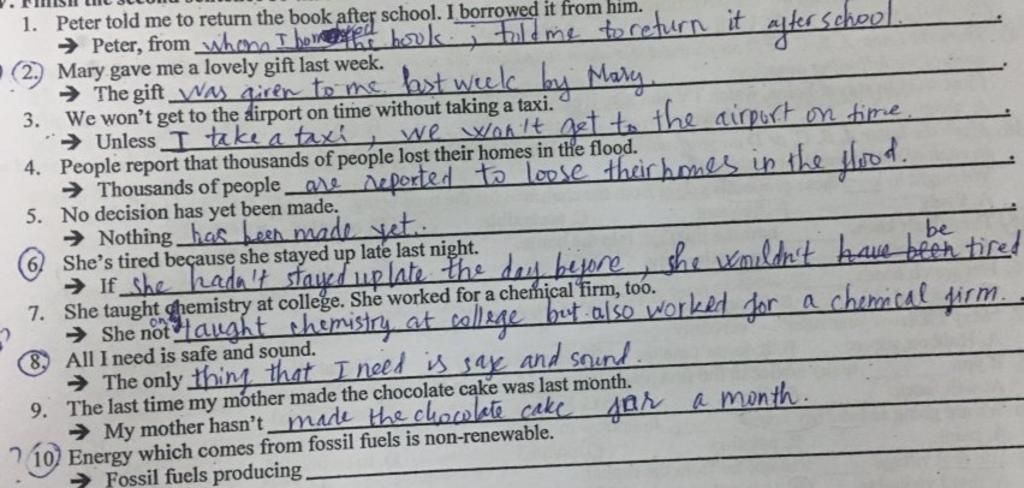 1. Peter told me to return the book after school. I borrowed it from him.
→ Peter, from whom I borrowed the book, told me to return it after school.
2. Mary gave me a lovely gift last week.
→ The gift was given to me last week by Mary.
3. We won't get to the airport on time without taking a taxi.
→ Unless I take a taxi, we won't get to the airport on time.
4. People report that thousands of people lost their homes in the flood.
→ Thousands of people are reported to loose their homes in the flood.
5. No decision has yet been made.
→ Nothing has been made yet.
6. She's tired because she stayed up late last night.
→ If she hadn't stayed up late the day before, she wouldn't have been be tired
7. She taught chemistry at college. She worked for a chemical firm, too.
→ She not only taught chemistry at college but also worked for a chemical firm.
8. All I need is safe and sound.
→ The only thing that I need is safe and sound.
9. The last time my mother made the chocolate cake was last month.
→ My mother hasn't made the chocolate cake for a month.
10. Energy which comes from fossil fuels is non-renewable.
→ Fossil fuels producing